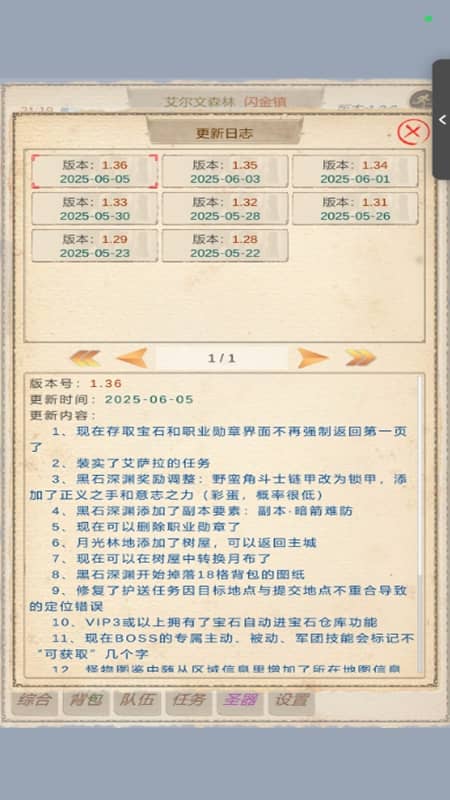 艾尔文森林 闪金镇
更新日志
版本：1.36
2025-06-05
版本：1.35
2025-06-03
版本：1.34
2025-06-01
版本：1.33
2025-05-30
版本：1.32
2025-05-28
版本：1.31
2025-05-26
版本：1.29
2025-05-23
版本：1.28
2025-05-22
1/1
版本号：1.36
更新时间：2025-06-05
更新内容：
1、现在存取宝石和职业勋章界面不再强制返回第一页
了
2、装实了艾萨拉的任务
3、黑石深渊奖励调整：野蛮角斗士链甲改为锁甲，添
加了正义之手和意志之力（彩蛋，概率很低）
4、黑石深渊添加了副本要素：副本·暗箭难防
5、现在可以删除职业勋章了
6、月光林地添加了树屋，可以返回主城
7、现在可以在树屋中转换月布了
8、黑石深渊开始掉落18格背包的图纸
9、修复了护送任务因目标地点与提交地点不重合导致
的定位错误
10、VIP3或以上拥有了宝石自动进宝石仓库功能
11、现在BOSS的专属主动、被动、军团技能会标记不
“可获取”几个字
12、怪物图鉴中藓从区域信息里增加了所在地图信息
综合
背包
队伍
任务
圣器
设置